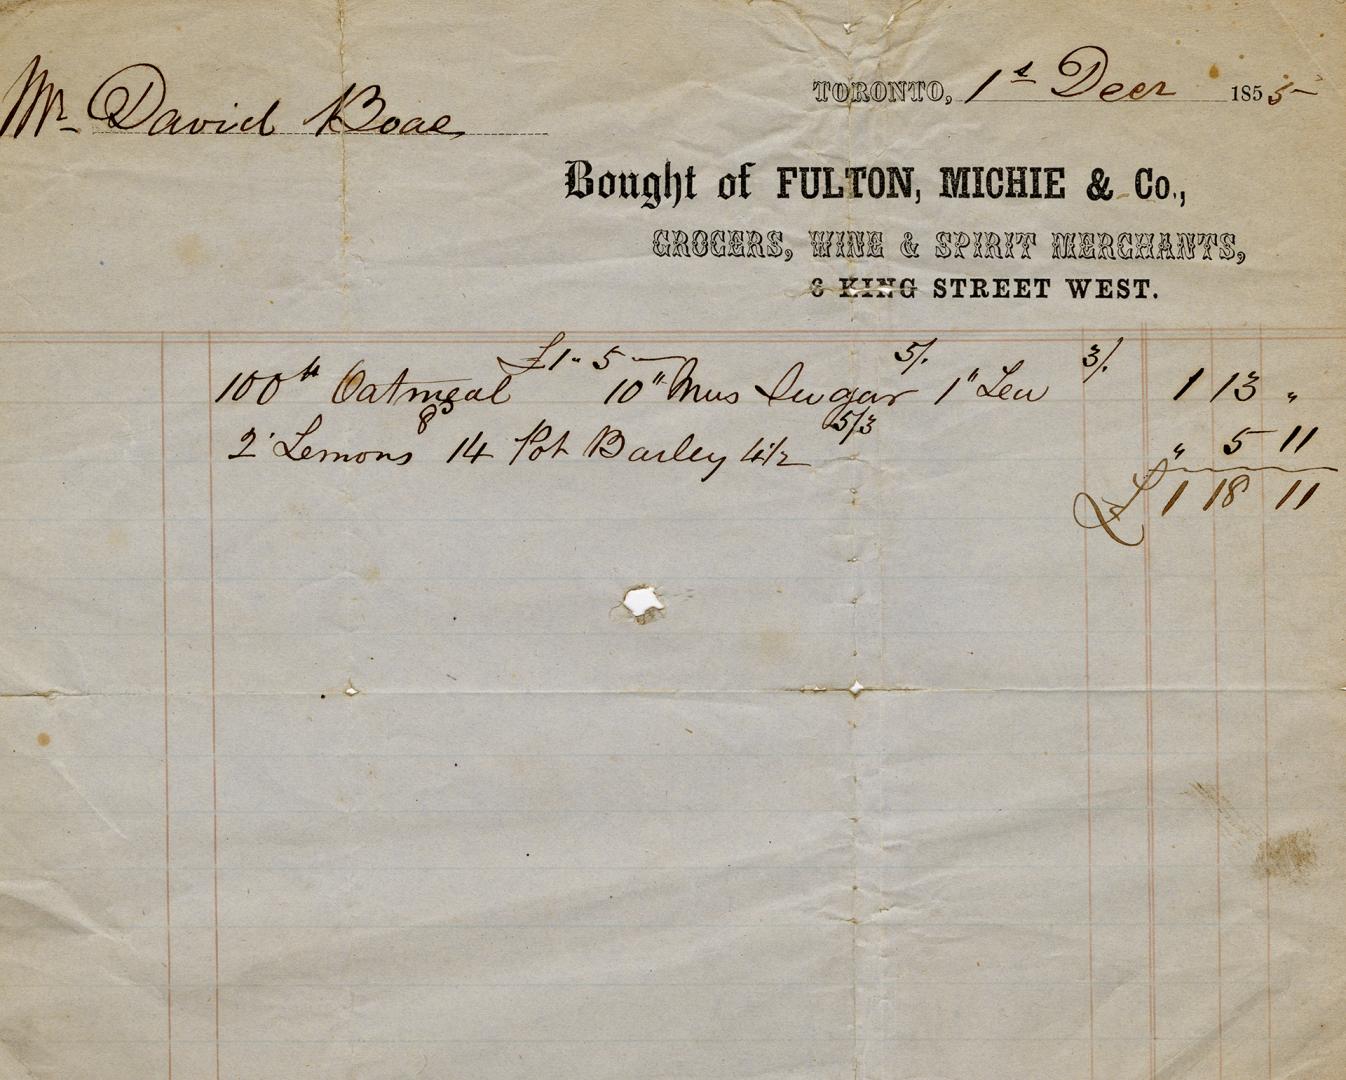 TORONTO, 1st Decr 1855
Mr David Boae
Bought of FULTON, MICHIE & Co.,
GROCERS, WINE & SPIRIT MERCHANTS,
8 KING STREET WEST.
£1 " 5 — 5/. 3/.
100 lb Oatmeal 10 " Mus Sugar 1 " Tea 1 13 "
8d 5/3
2 Lemons 14 Pot Barley 4½ " 5 11
£ 1 18 11